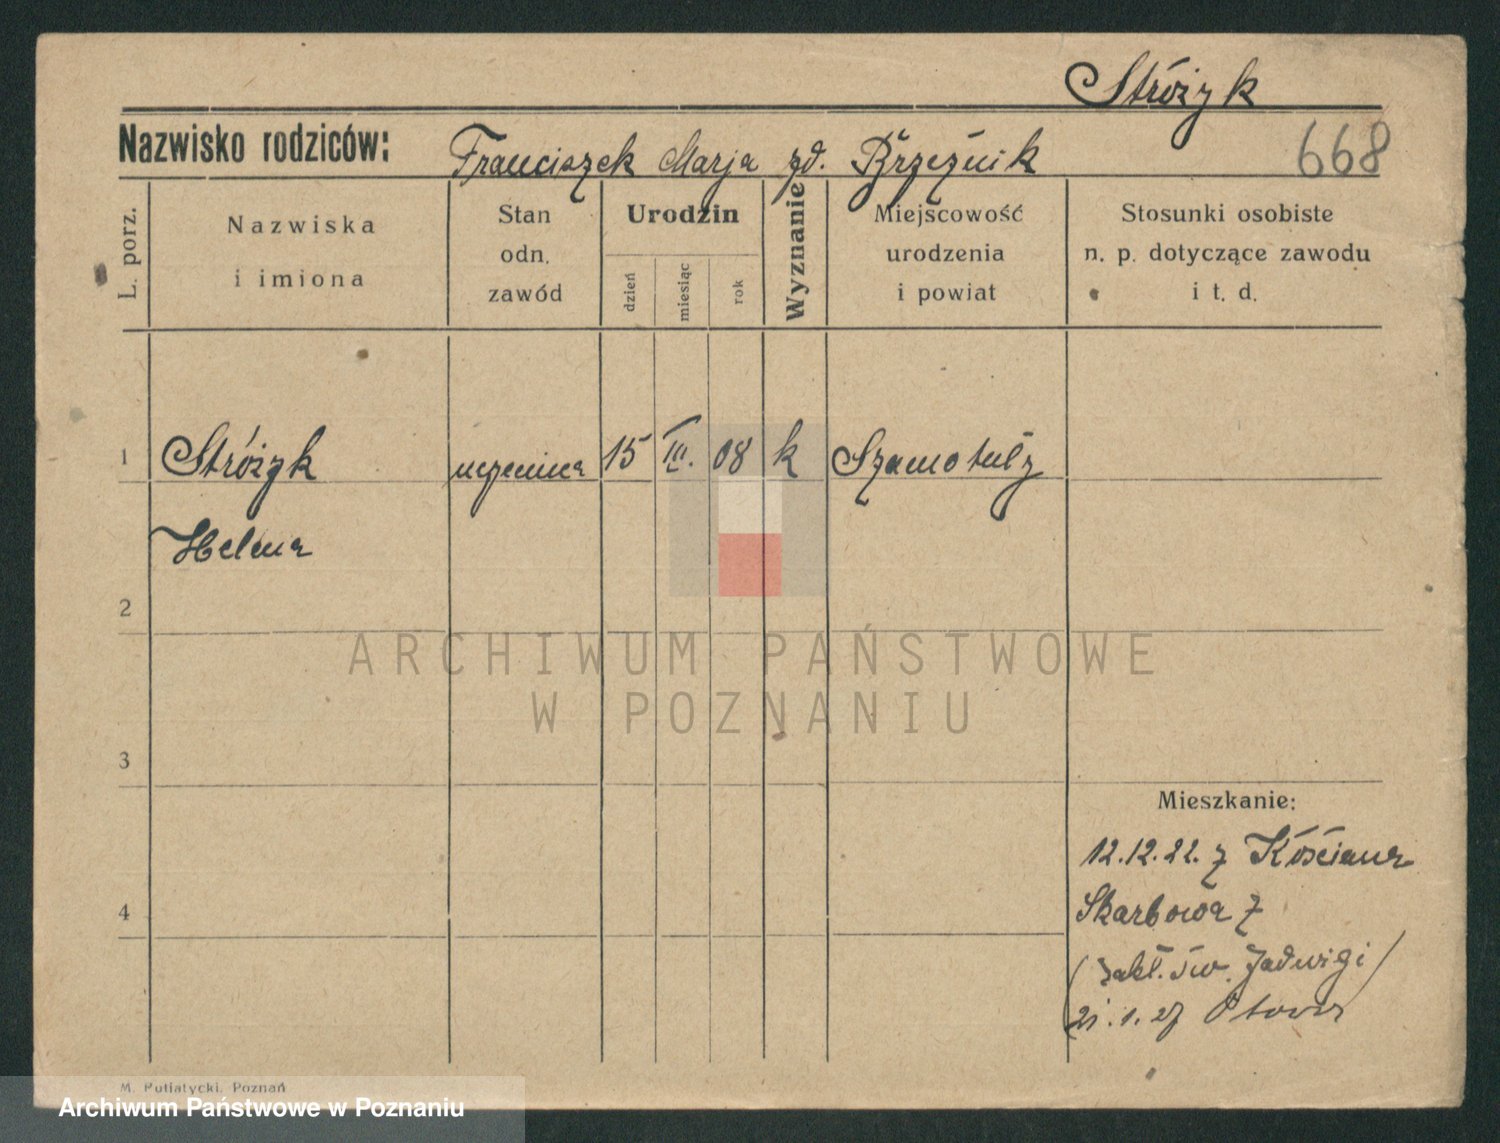 Stróżyk
Nazwisko rodziców: Franciszek Marja zd. Brzeźnik 668
L. porz.
Nazwiska i imiona
Stan odn. zawód
Urodzin
dzień
miesiąc
rok
Wyznanie
Miejscowość urodzenia i powiat
Stosunki osobiste n. p. dotyczące zawodu i t. d.
1 Stróżyk uczenica 15 III. 08 k Szamotuły
Helena
2
ARCHIWUM PAŃSTWOWE
W POZNANIU
3
Mieszkanie:
12.12.22. z Kościana
4 Skarbowa 7
(Zakł. św. Jadwigi)
21.1.27
M. Putiatycki, Poznań
Archiwum Państwowe w Poznaniu